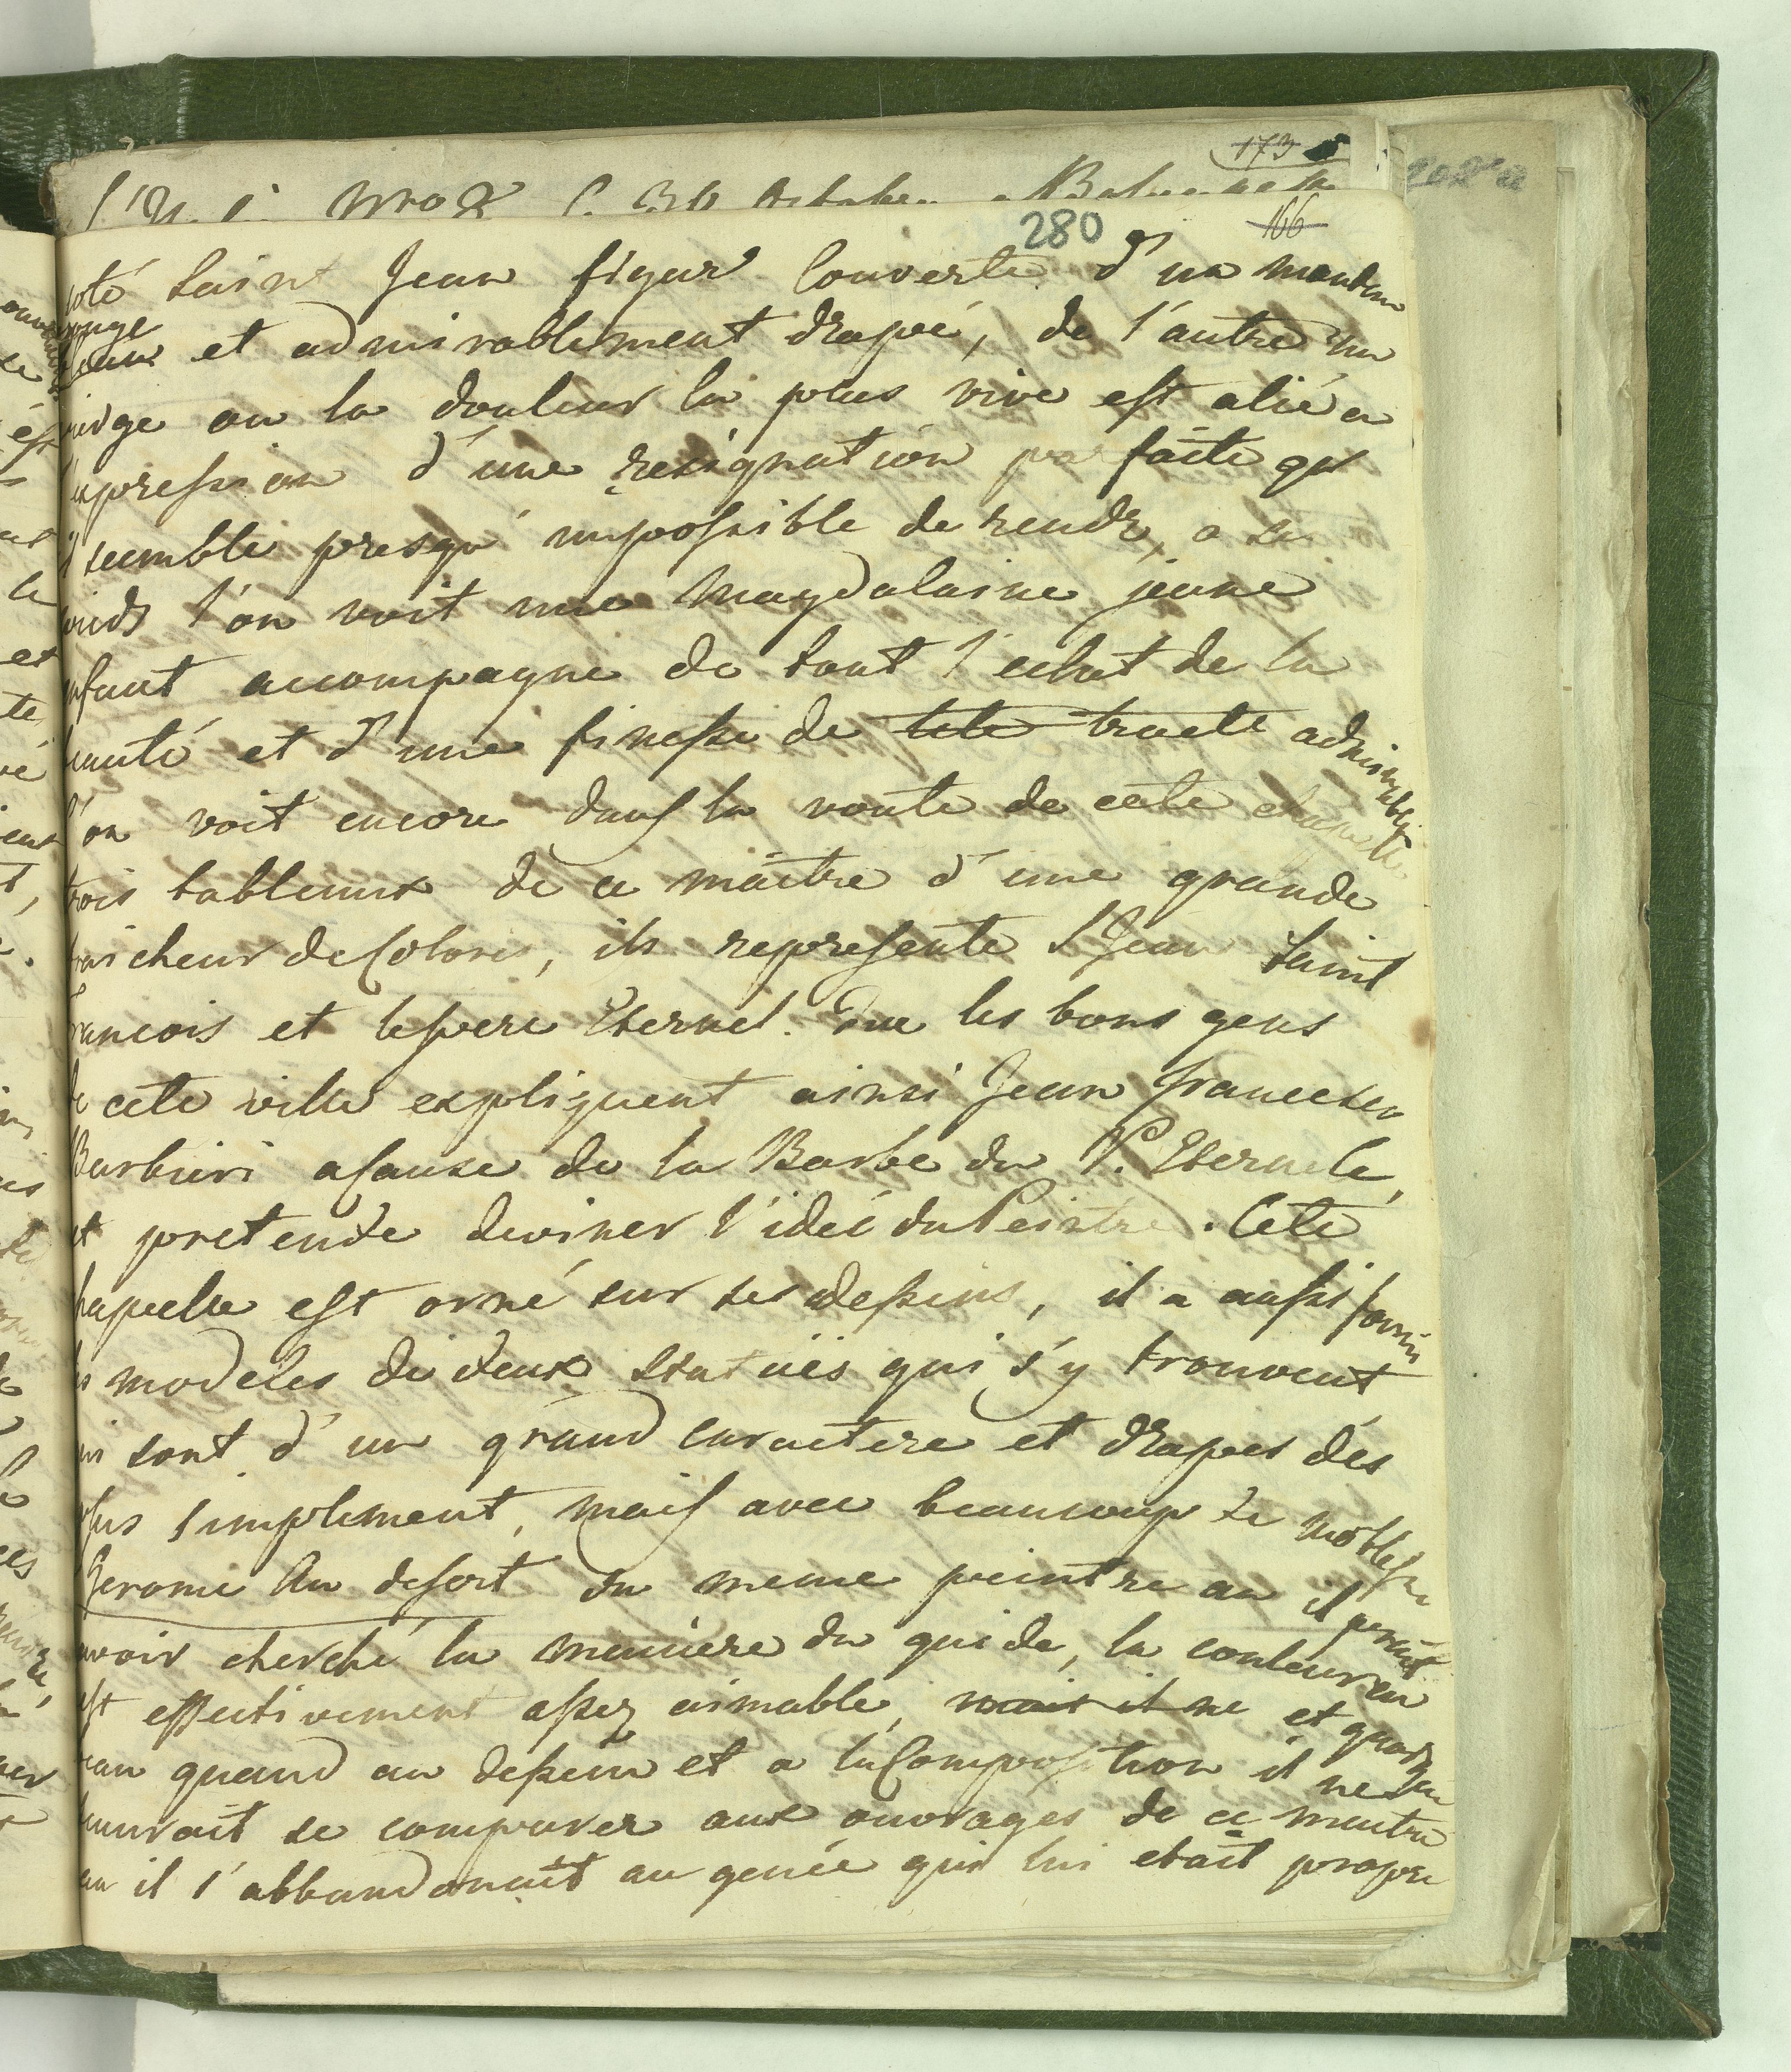 173
202 a
280
166
coté saint Jean figure Couverte d'un manteau
rouge
et admirablement drapé, de l'autre un
vierge ou la douleur la plus vive est alié a
l'expression d'une resignation parfaite qu
il semble presqu' impossible de rendre, a se
pieds l'on voit une Magdalaine jeune
enfant accompagne de tout l'eclat de la
beauté et d'une finesse de tete traets admirable
l'on voit encore dans la voute de cete chapelle
trois tableaux de ce maitre d'une grande
fraicheur de Coloris, ils represente S Jean Saint
Francois et le pere Eternel. Que les bons gens
de cete ville expliquent ainsi Jean francesco
Barbieri a cause de la Barbe du P. Eternele,
et pretende deviner l'idée du Peintre. Cete
chapelle est orné sur ses dessins, il a aussi forni
les modeles de deux statües qui s'y trouvent
qui sont d'un grand caractere et drapes des
plus simplement, mais avec beaucoup de noblesse
Jerome Au desert du meme peintre ou il parait
avoir cherché la maniere du guide, la couleur en
est effectivement assez aimable, mais il ne et quand
quand au dessein et a la Composition il ne
saurait se comparer aux ouvrages de ce maitre
ou il s'abbandonait au genie qui lui etait propre